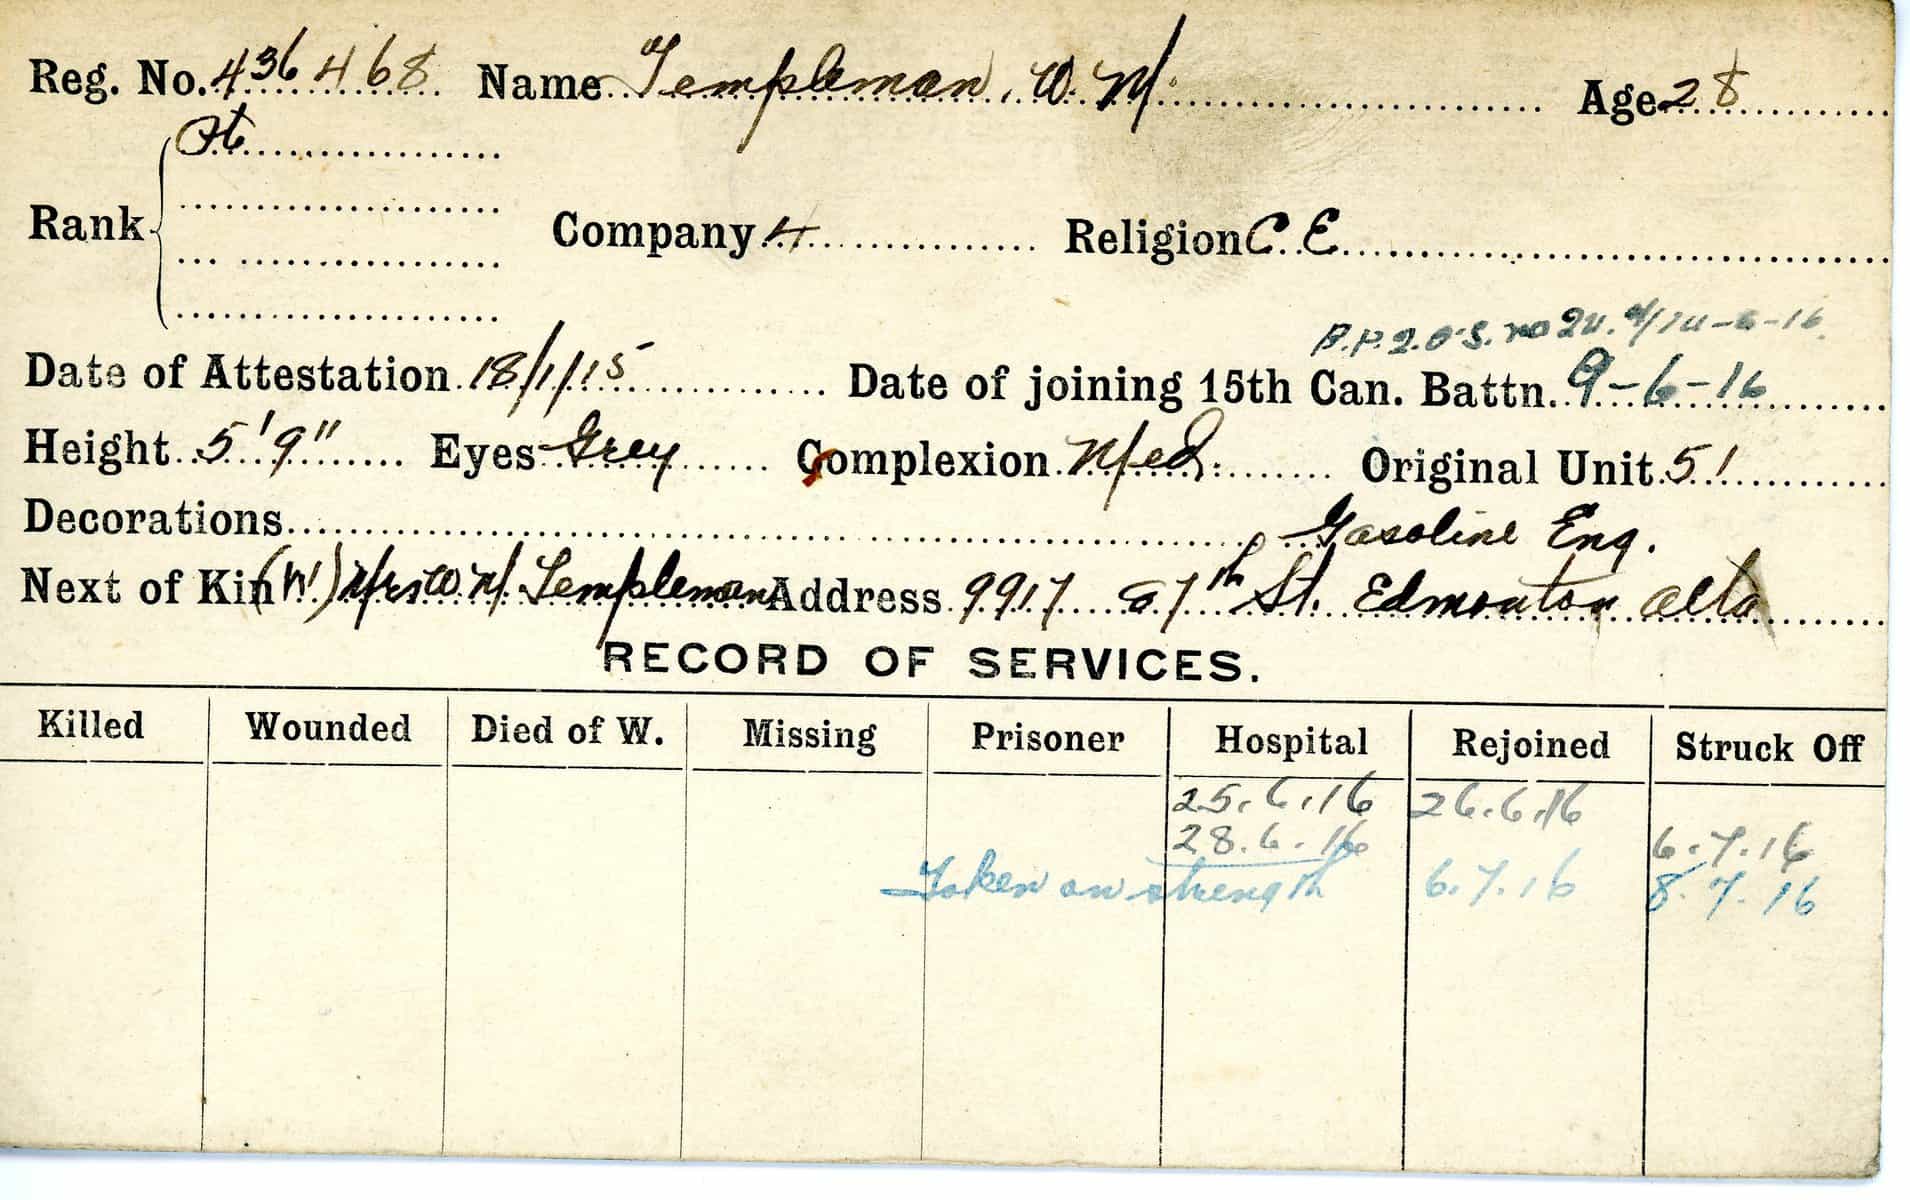 Reg. No. 436468 Name Templeman, W. M. Age 28
Pte
Rank Company 4 Religion C. E.
B.P.2.O'S. no 24. d/14-6-16.
Date of Attestation 18/1/15 Date of joining 15th Can. Battn. 9-6-16
Height 5'9" Eyes Grey Complexion Med. Original Unit 51
Decorations Gasoline Eng.
Next of Kin (W) Mrs W. M. Templeman Address 9917 St. Edmonton Alta
RECORD OF SERVICES.
Killed Wounded Died of W. Missing Prisoner Hospital Rejoined Struck Off
25.6.16 26.6.16
28.6.16 6.7.16
Taken on strength 6.7.16 8.7.16